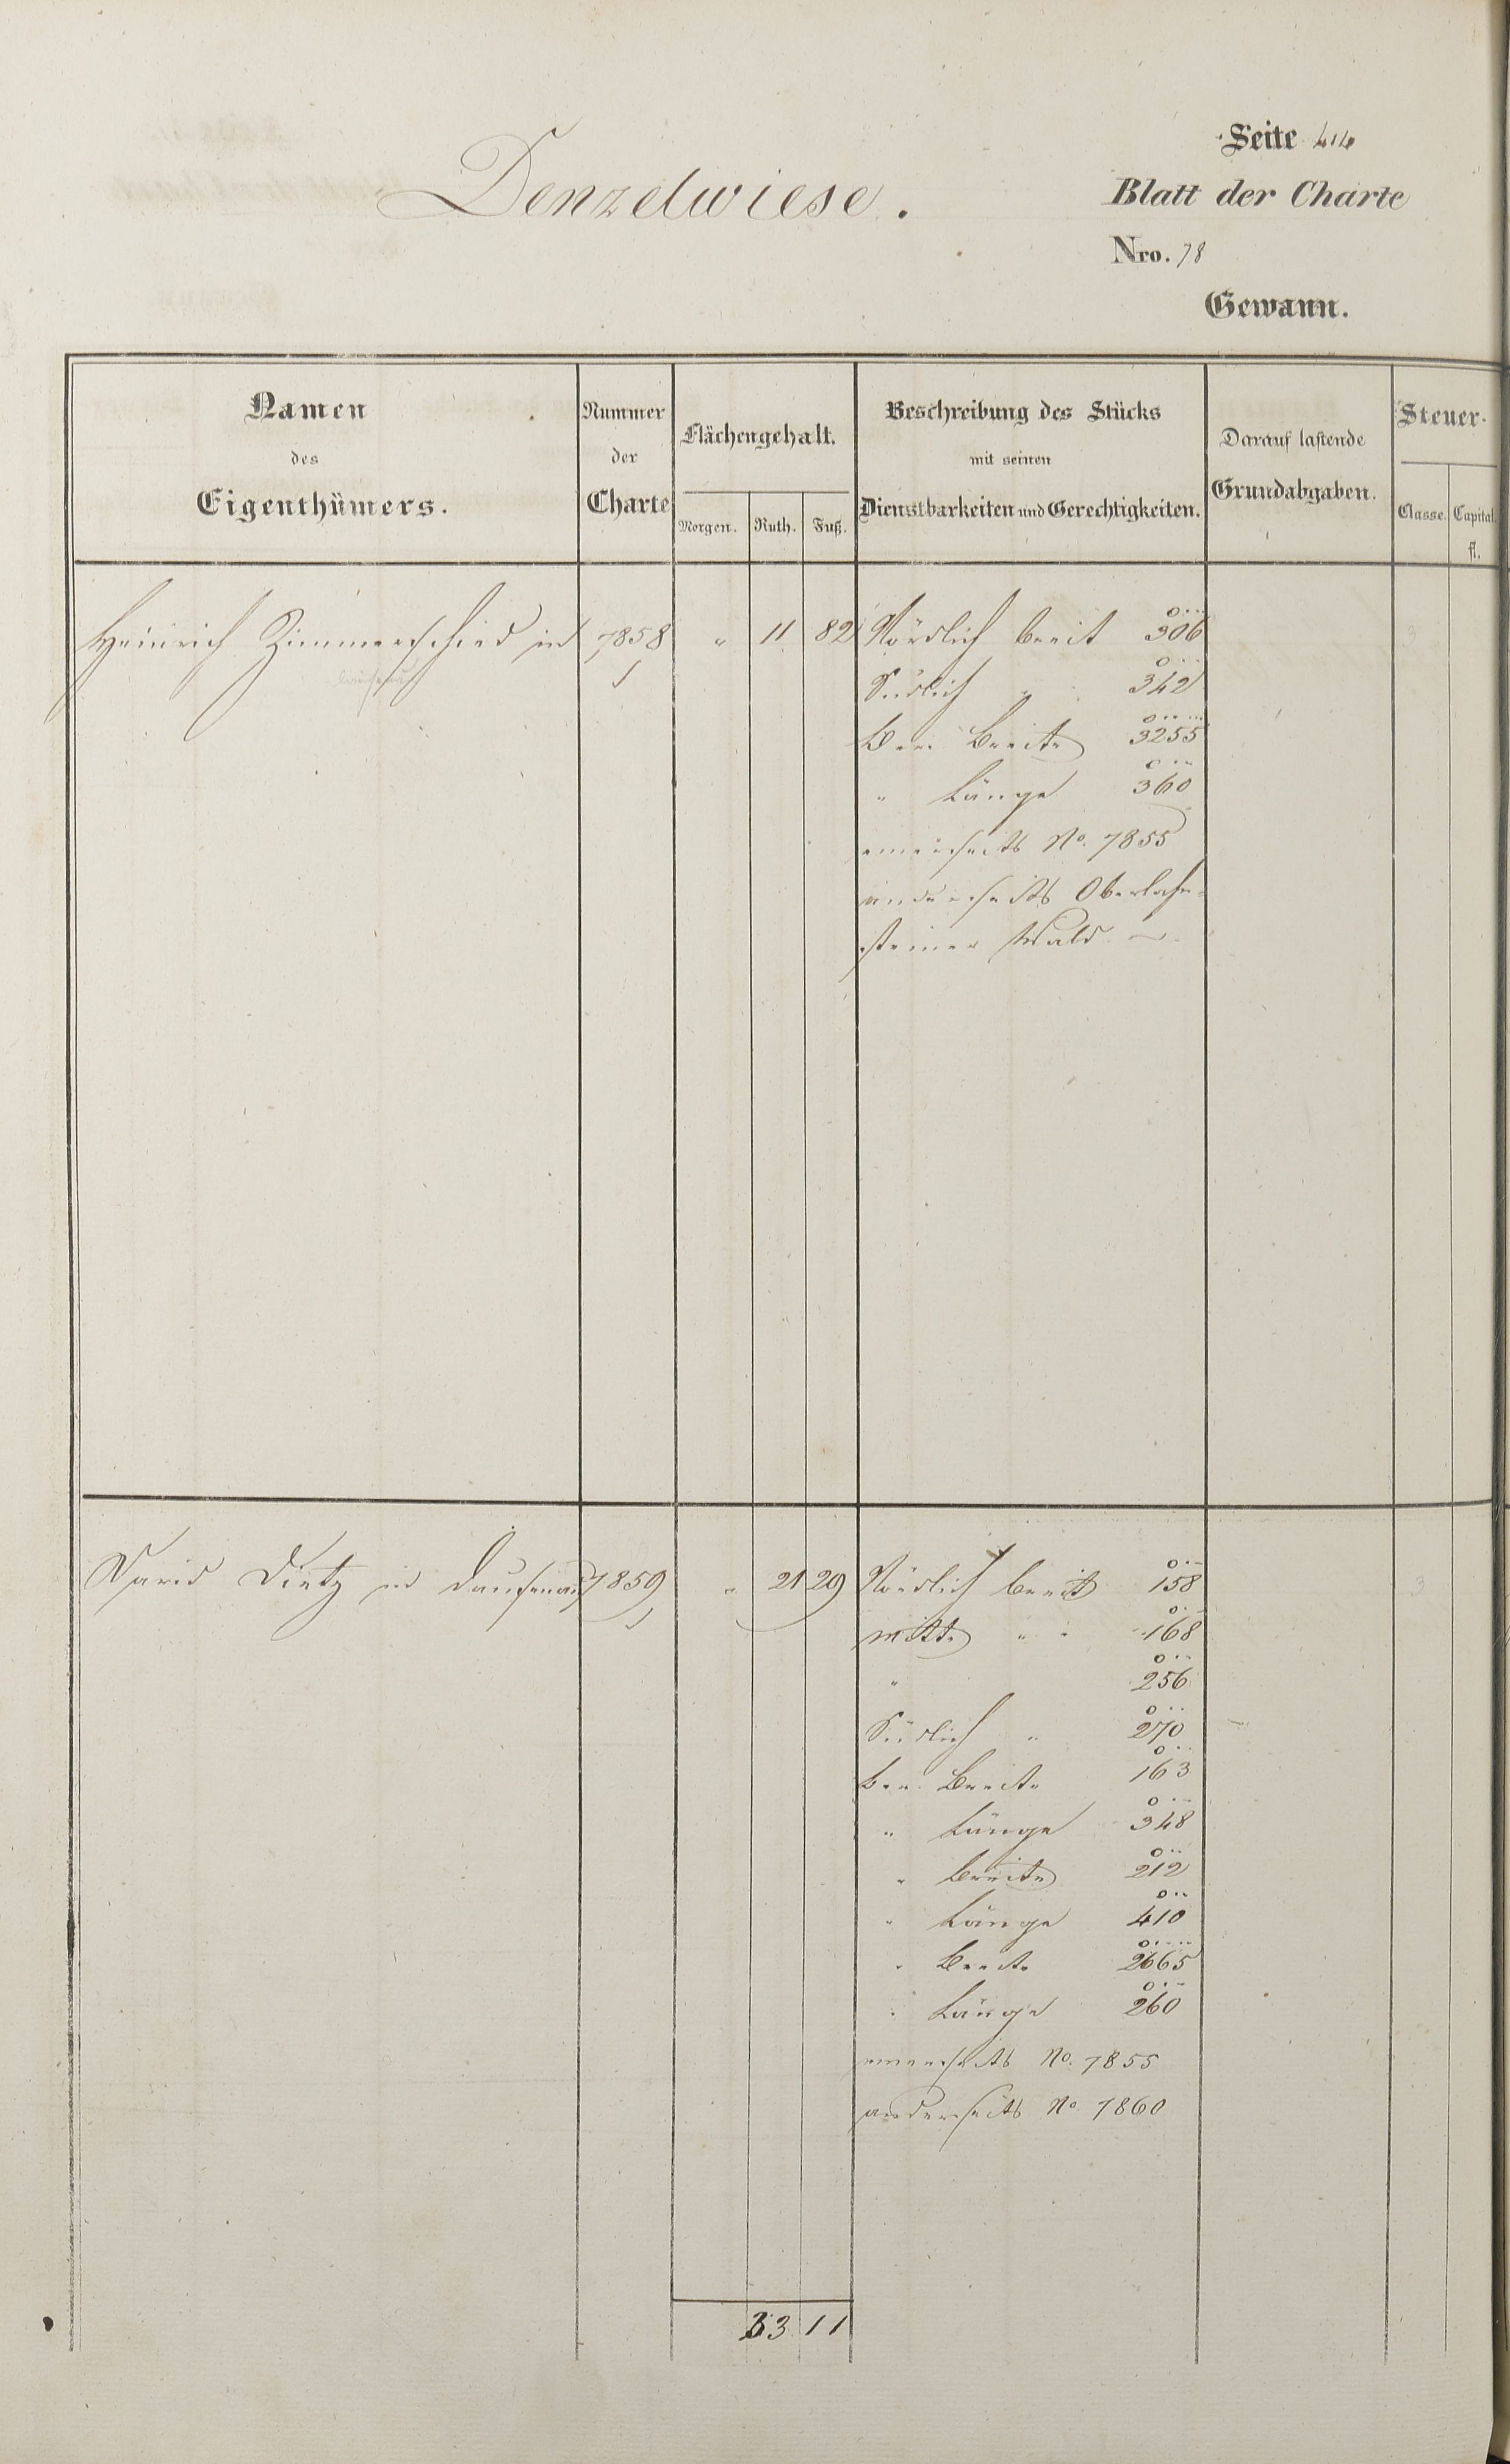 Seite 414
Denzelwiese.
Blatt der Charte
Nro. 78
Gewann.
Namen
des
Eigenthümers.
Nummer
der
Charte
Flächengehalt.
Morgen. Ruth. Fuß.
Beschreibung des Stücks
mit seinen
Dienstbarkeiten und Gerechtigkeiten.
Darauf lastende
Grundabgaben.
Steuer-
Classe. Capital.
fl.
Heinrich Zimmerschied in 7858 " 11 82 Nördlich breit 306 3
Dausenau
Südlich " 342
Ber. Breite 3255
" Länge 360
einerseits No. 7855
anderseits Oberlahn-
steiner Wald. —
David Dietz in Dausenau 7859 " 21 29 Nördlich breit 158 3
mitte " " 168
" 256
Südlich " 270
ber. Breite 163
" Länge 348
" Breite 212
" Länge 410
" Breite 2665
" Länge 260
einerseits No. 7855
anderseits No. 7860
33 11